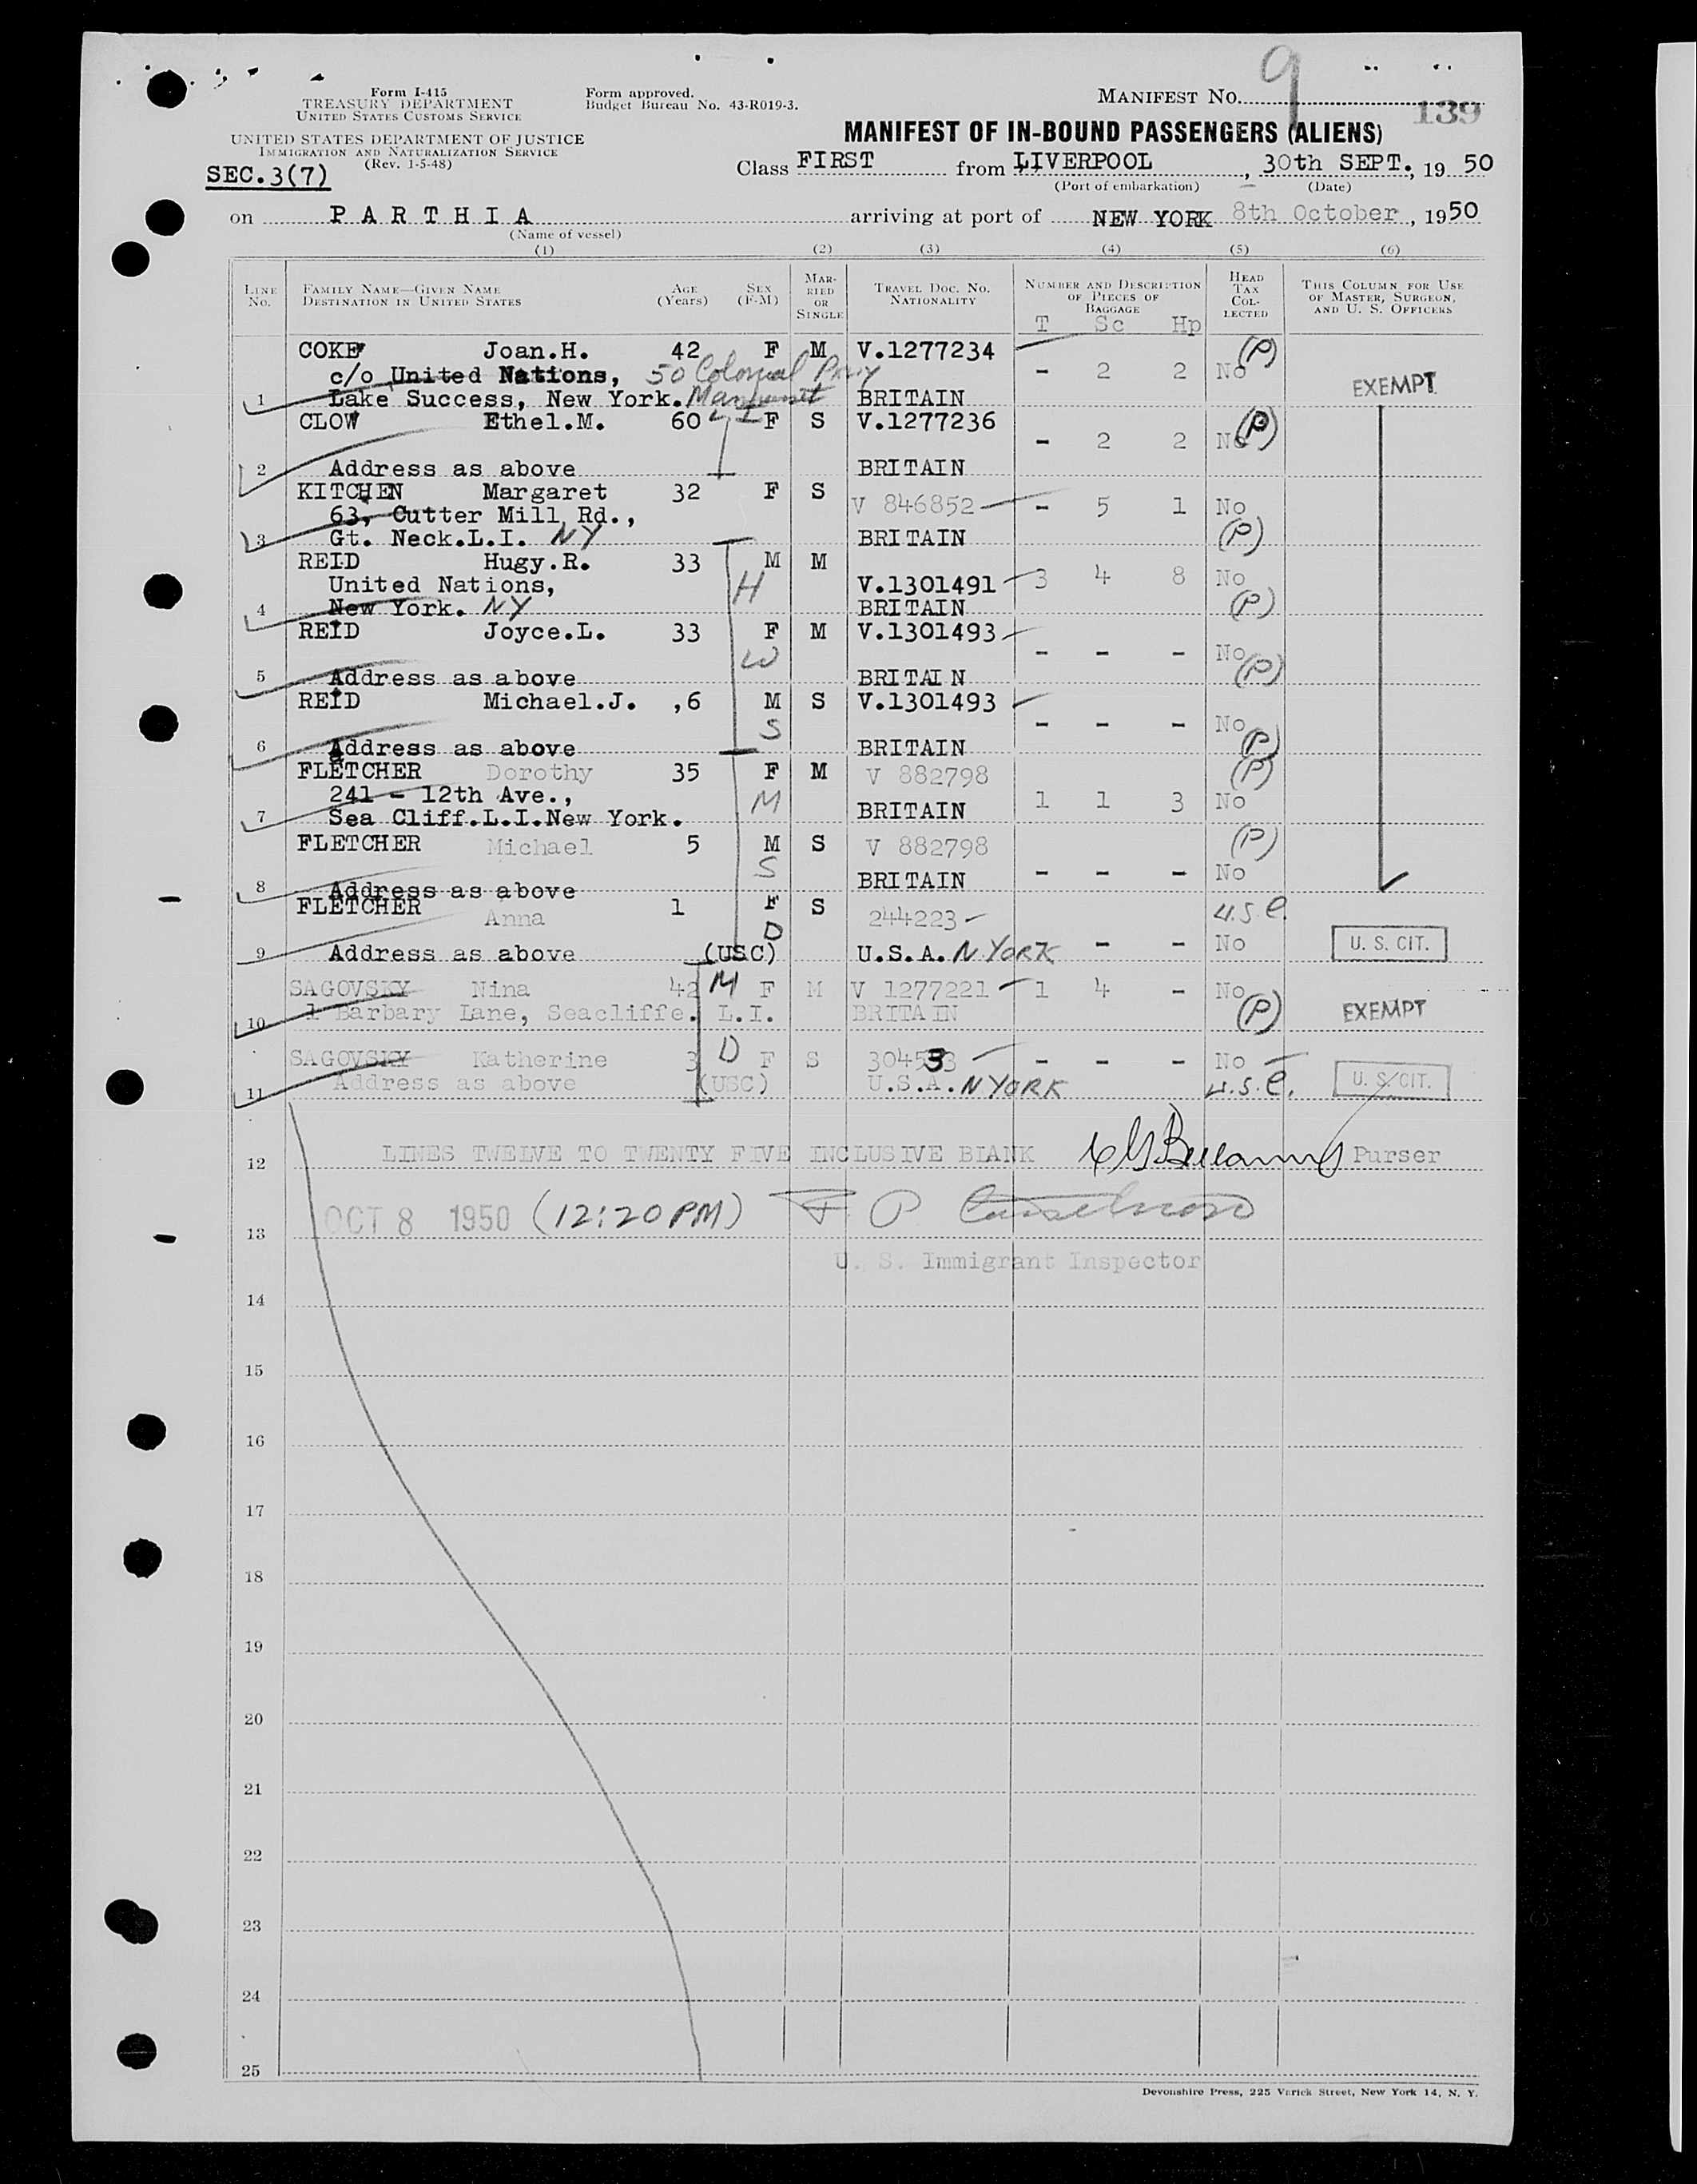 9
Form I-415
TREASURY DEPARTMENT
UNITED STATES CUSTOMS SERVICE
UNITED STATES DEPARTMENT OF JUSTICE
IMMIGRATION AND NATURALIZATION SERVICE
(Rev. 1-5-48)
SEC.3(7)
Form approved.
Budget Bureau No. 43-R019-3.
MANIFEST NO.
139
MANIFEST OF IN-BOUND PASSENGERS (ALIENS)
Class FIRST from LIVERPOOL, 30th SEPT., 19 50
(Port of embarkation) (Date)
on PARTHIA arriving at port of NEW YORK 8th October, 1950
(Name of vessel)
(1) (2) (3) (4) (5) (6)
LINE No. FAMILY NAME—GIVEN NAME DESTINATION IN UNITED STATES AGE (Years) SEX (F-M) MARRIED OR SINGLE TRAVEL DOC. NO. NATIONALITY NUMBER AND DESCRIPTION OF PIECES OF BAGGAGE HEAD TAX COLLECTED THIS COLUMN FOR USE OF MASTER, SURGEON, AND U. S. OFFICERS
T Sc Hp
COKE Joan.H. 42 F M V.1277234 (P)
c/o United Nations, 50 Colonial Pkwy - 2 2 No EXEMPT
1 Lake Success, New York. Manhasset BRITAIN
CLOW Ethel.M. 60 L I F S V.1277236 (P)
- 2 2 No
2 Address as above BRITAIN
KITCHEN Margaret 32 F S V 846852 - 5 1 No
63, Cutter Mill Rd.,
3 Gt. Neck.L.I. NY BRITAIN (P)
REID Hugy.R. 33 M M
United Nations, H V.1301491 3 4 8 No
4 New York. NY BRITAIN (P)
REID Joyce.L. 33 F M V.1301493
W - - - No
5 Address as above BRITAIN (P)
REID Michael.J. ,6 M S V.1301493
S - - - No
6 Address as above BRITAIN (P)
FLETCHER Dorothy 35 F M V 882798 (P)
241 - 12th Ave., M 1 1 3 No
7 Sea Cliff.L.I.New York. BRITAIN
FLETCHER Michael 5 M S V 882798 (P)
S
8 Address as above BRITAIN - - - No
FLETCHER Anna 1 F S 244223 U.S.C.
D
9 Address as above (USC) U.S.A. N YORK - - No U. S. CIT.
SAGOVSKY Nina 42 M F M V 1277221 1 4 - No
10 1 Barbary Lane, Seacliffe. L.I. BRITAIN (P) EXEMPT
SAGOVSKY Katherine 3 D F S 304533 - - - No
11 Address as above (USC) U.S.A. N YORK U.S.C. U. S. CIT.
12 LINES TWELVE TO TWENTY FIVE INCLUSIVE BLANK Purser
13 OCT 8 1950 (12:20PM) F. P.
U. S. Immigrant Inspector
14
15
16
17
18
19
20
21
22
23
24
25
Devonshire Press, 225 Varick Street, New York 14, N. Y.